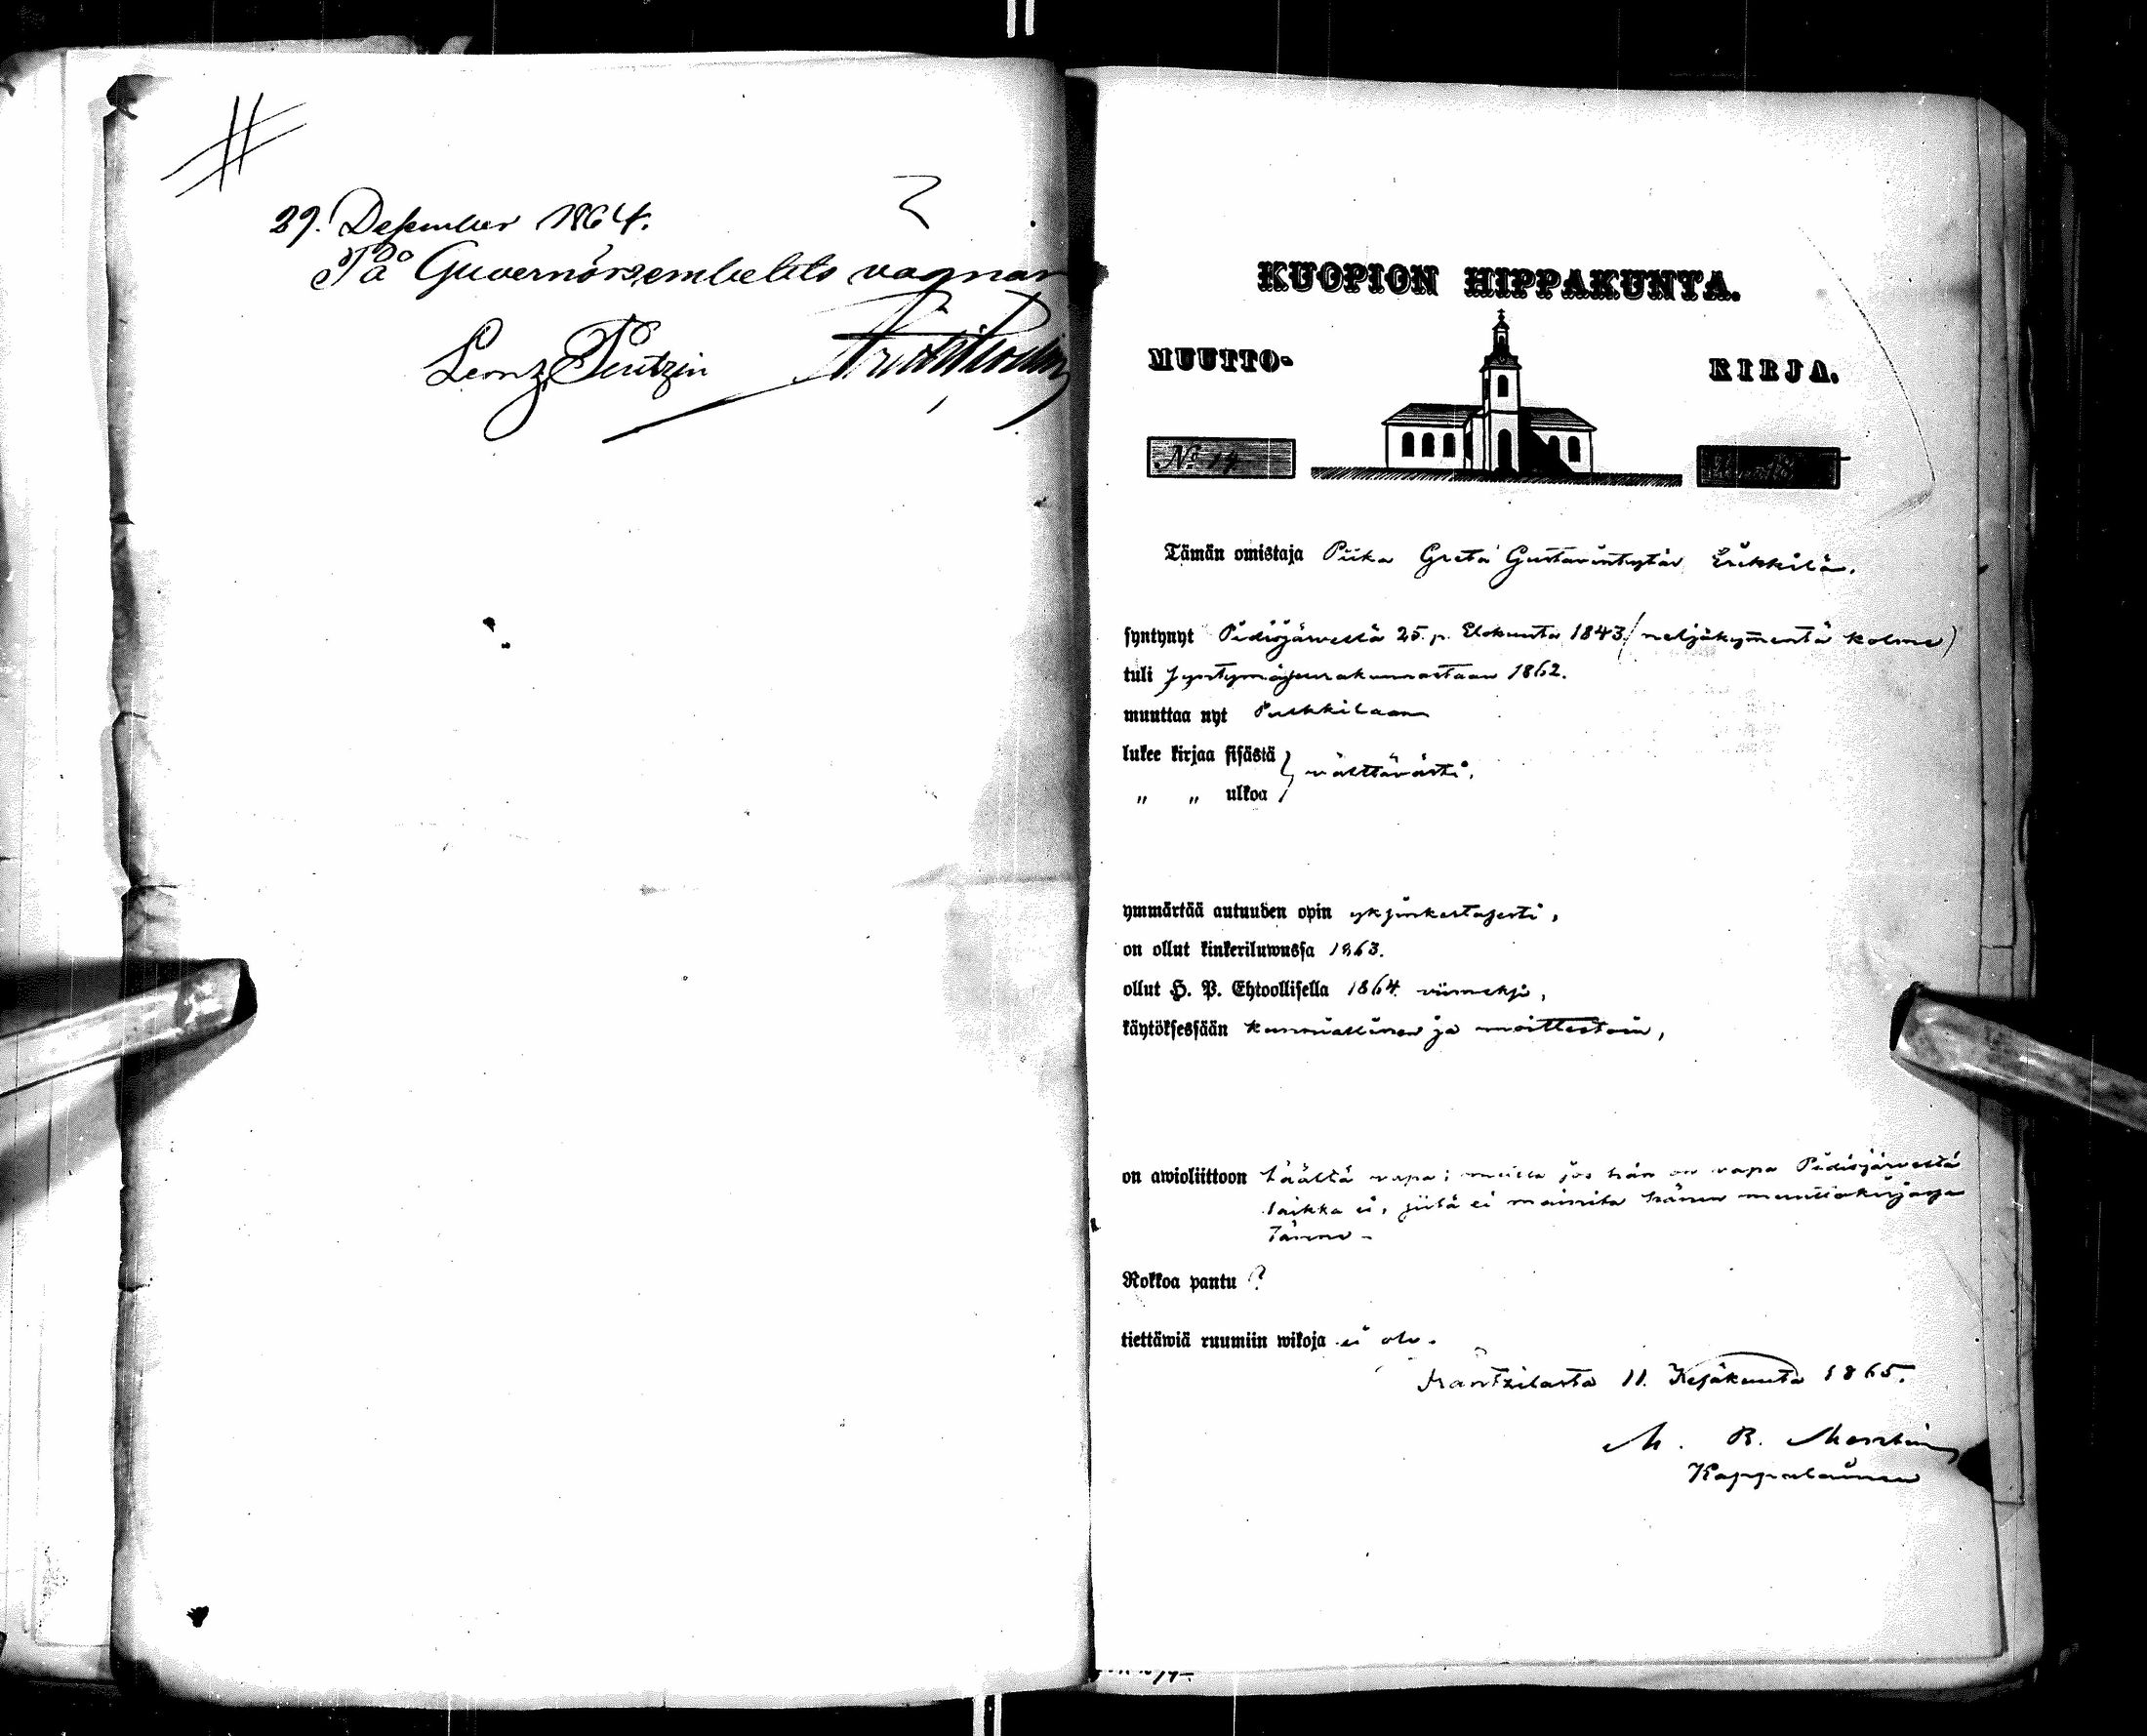 29. December 1864.
På Guvernörsembetets vagnar
KUOPION HIPPAKUNTA.
MUUTTO- KIRJA.
No 14.
Tämän omistaja Piika Greta Gustavintytär Erkkilä.
syntynyt Pidisjärwellä 25. p. Elokuuta 1843 (neljäkymentä kolme)
tuli syntymäseurakunnastaan 1862.
muuttaa nyt Pulkkilaan
lukee kirjaa sisästä } välttävästi,
" " ulkoa
ymmärtää autuuden opin yksinkertasesti,
on ollut kinkeriluwussa 1863.
ollut H. P. Ehtoollisella 1864 viimeksi,
käytöksessään kunniallinen ja moittestoin,
on awioliittoon täältä vapa; mutta jos hän on vapa Pidisjärveltä
taikka ei, siitä ei mainita hänen muuttokirjassa
tänne -
Rokkoa pantu ?
tiettäwiä ruumiin wikoja ei ole.
Frantzilasta 11. Kesäkuuta 1865.
M. R.
Kappalainen